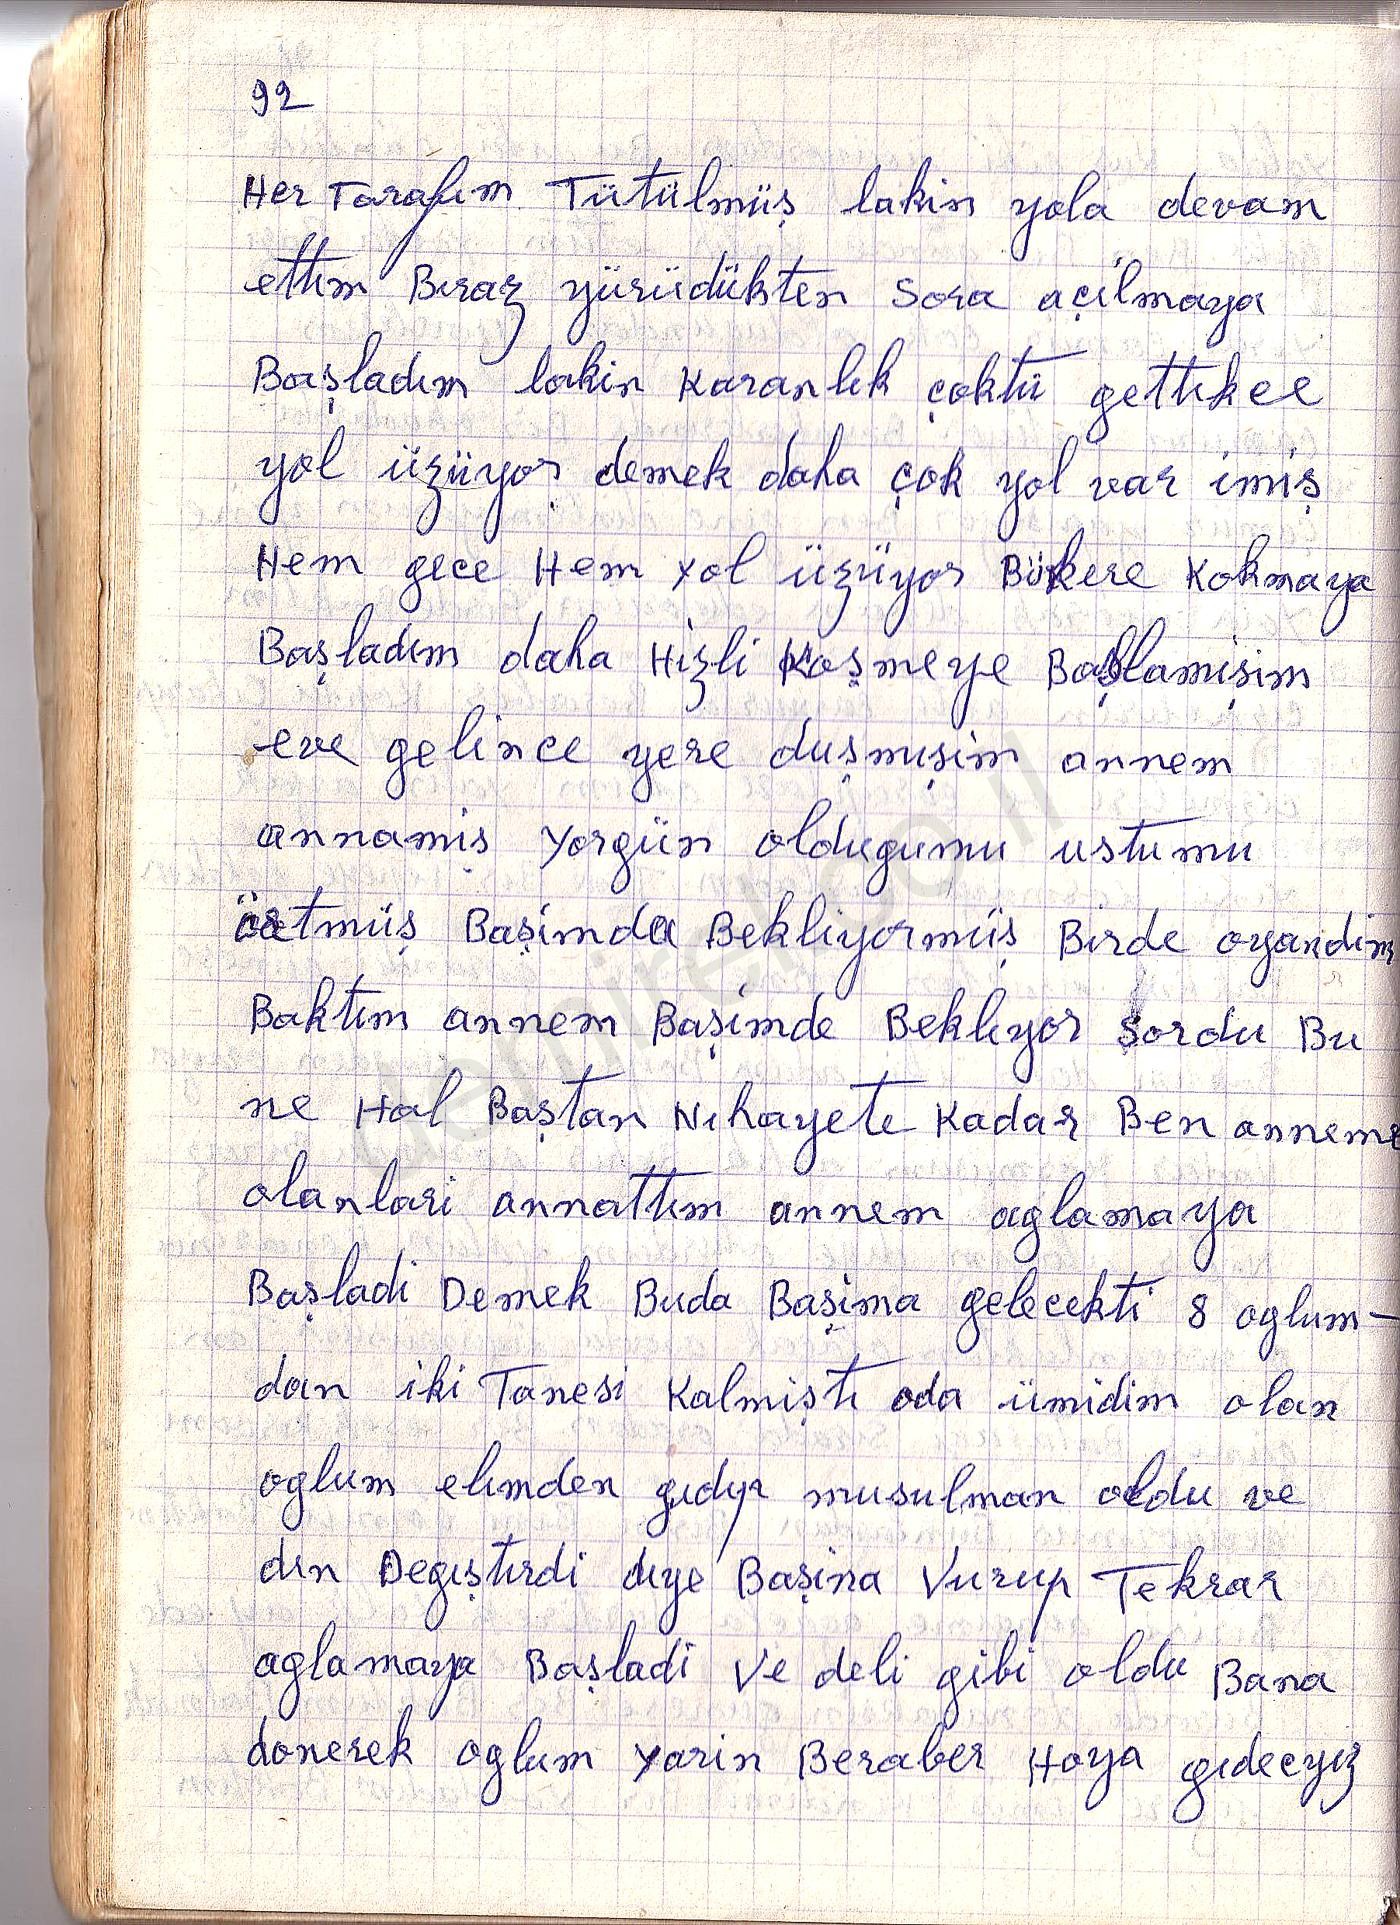 92
Her Tarafım Tütülmüş lakin yola devam
ettım Bıraz yürüdükten sora açilmaya
Başladım lakin Karanlık çoktü gettıkce
yol üzüyor demek daha çok yol var imiş
Hem gece Hem Yol üzüyor Bükere Kokmaya
Başladım daha Hizli Koşmeye Başlamişim
eve gelince yere duşmuşim annem
annamiş Yorgün oldugumu ustumu
örtmüş Başimda Beklıyormüş Bırde oyandim
Baktım annem Başimde Beklıyor sordu Bu
ne Hal Baştan Nıhayete Kadar Ben anneme
olanlari annattım annem aglamaya
Başladi Demek Buda Başima gelecekti 8 oglum-
dan iki Tanesi Kalmiştı oda ümidim olan
oglum elımden gıdıp musulman oldu ve
dın Degıştırdi dıye Başina Vurup Tekrar
aglamaya Başladi Ve deli gibi oldu Bana
donerek oglum Yarin Beraber Hoya gıdecyız
demirel.co.il